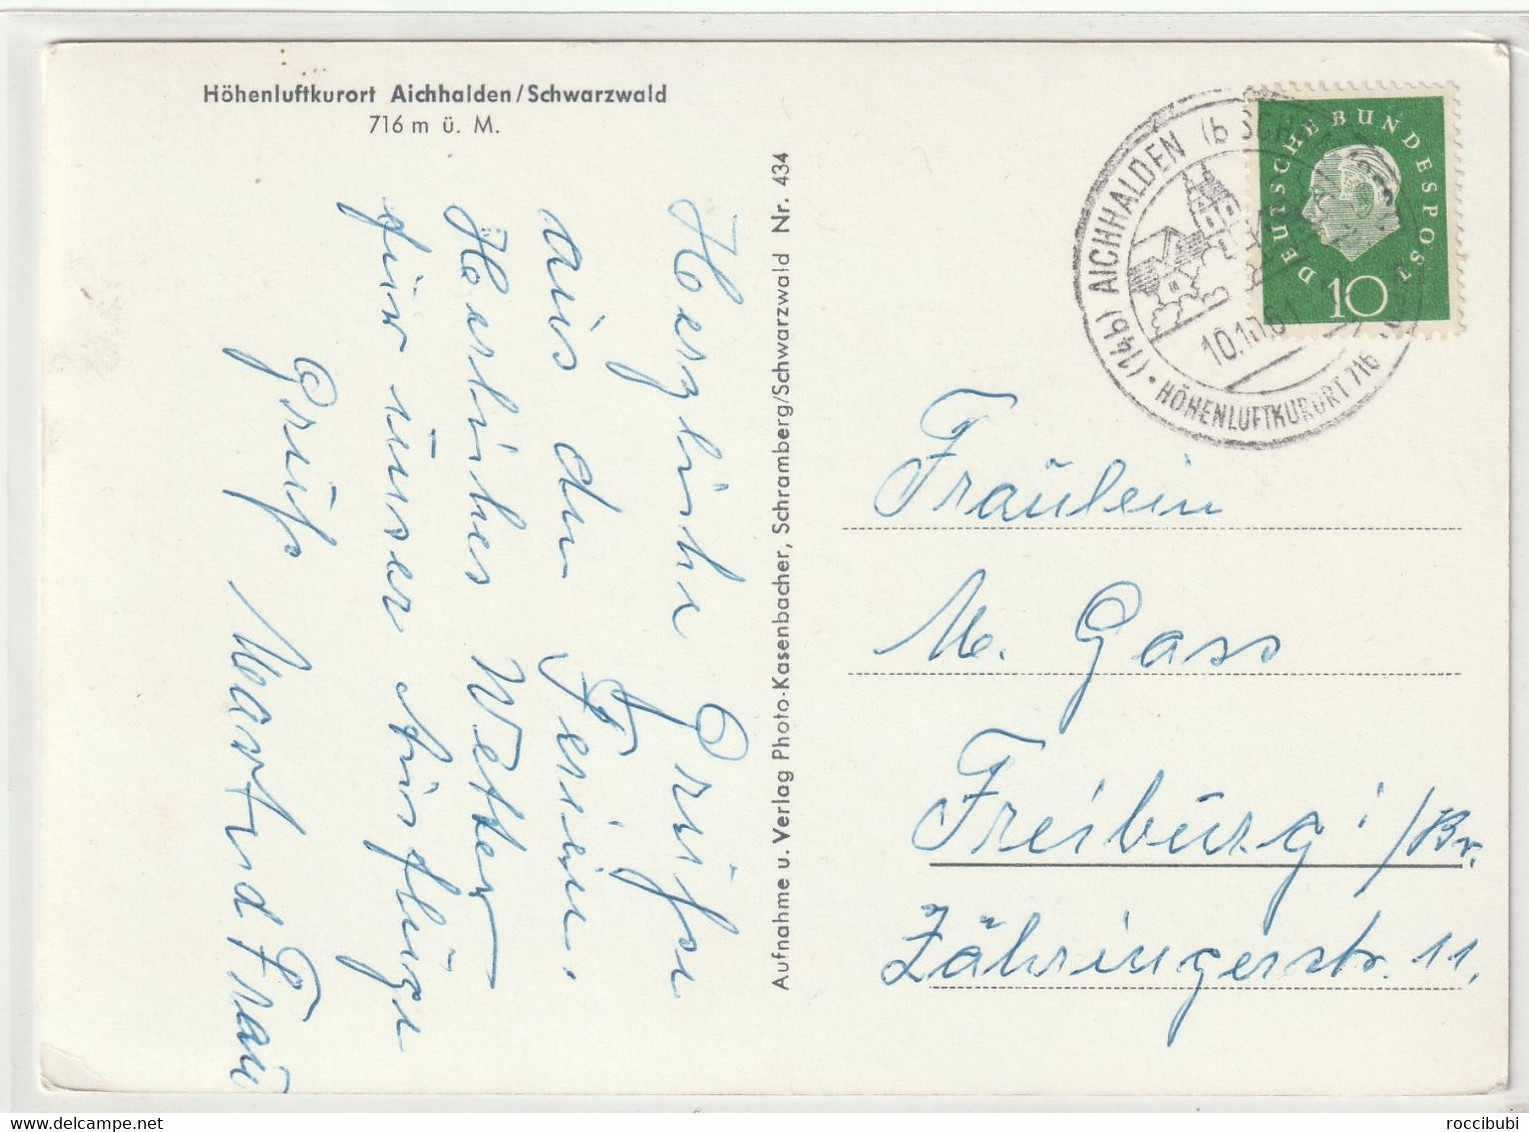 Höhenluftkurort Aichhalden/Schwarzwald
716 m ü. M.
Herzliche Grüße
aus den Ferien.
Herliches Wetter
für unser Ausflüge
Gruß Mart und Frau
Aufnahme u. Verlag Photo-Kasenbacher, Schramberg/Schwarzwald Nr. 434
(14b) AICHHALDEN (b SCH
HÖHENLUFTKURORT 716
DEUTSCHE BUNDESPOST
10
Fräulein
M. Gass
Freiburg i/Br.
Zähringerstr. 11.
roccibubi